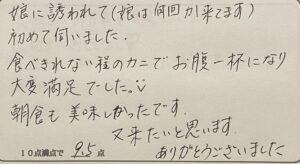 娘に誘われて(娘は何回か来てます)
初めて伺いました.
食べきれない程のカニでお腹一杯になり
大変満足でした。
朝食も美味しかったです.
又来たいと思います.
ありがとうございました
10点満点で 9.5 点